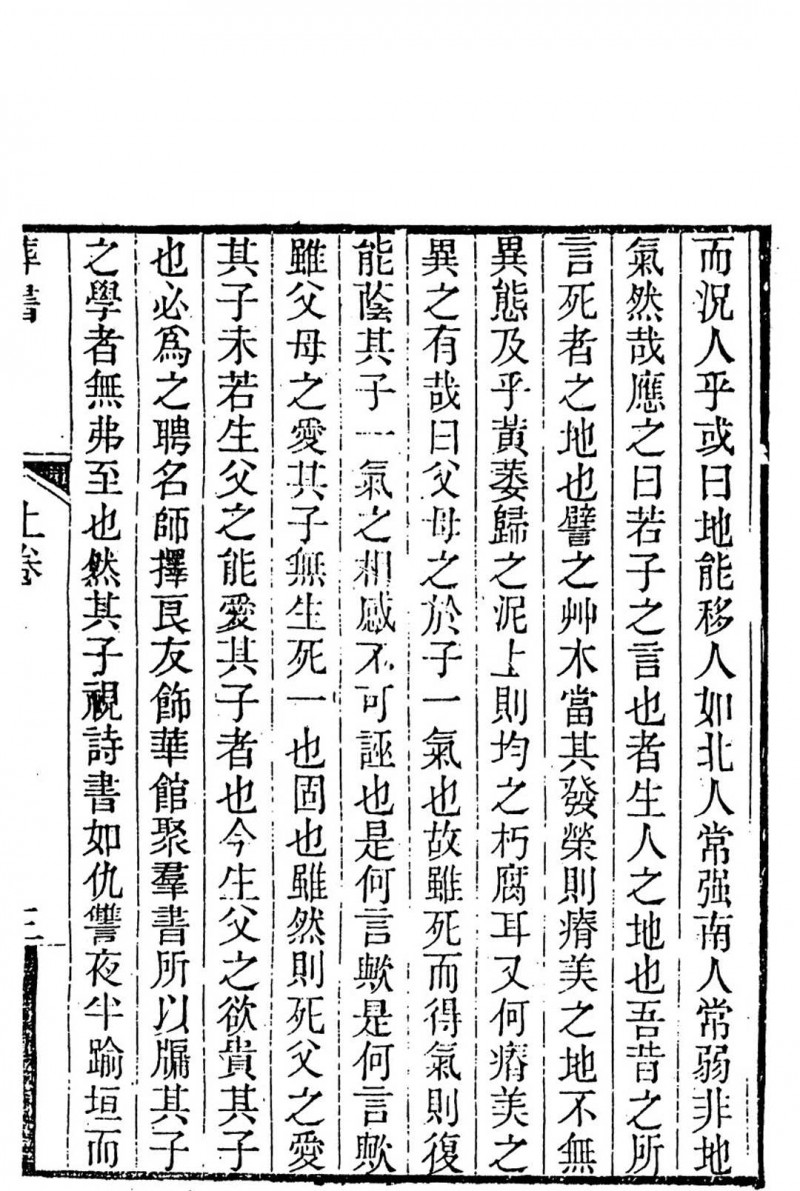 而況人乎或曰地能移人如北人常强南人常弱非地
氣然哉應之曰若子之言也者生人之地也吾昔之所
言死者之地也譬之艸木當其發榮則瘠美之地不無
異態及乎黃萎歸之泥土則均之朽腐耳又何瘠美之
異之有哉曰父母之於子一氣也故雖死而得氣則復
能蔭其子一氣之相感不可誣也是何言歟是何言歟
雖父母之愛其子無生死一也固也雖然則死父之愛
其子未若生父之能愛其子者也今生父之欲貴其子
也必爲之聘名師擇良友飾華館聚羣書所以牖其子
之學者無弗至也然其子視詩書如仇讐夜半踰垣而
書
上卷
三